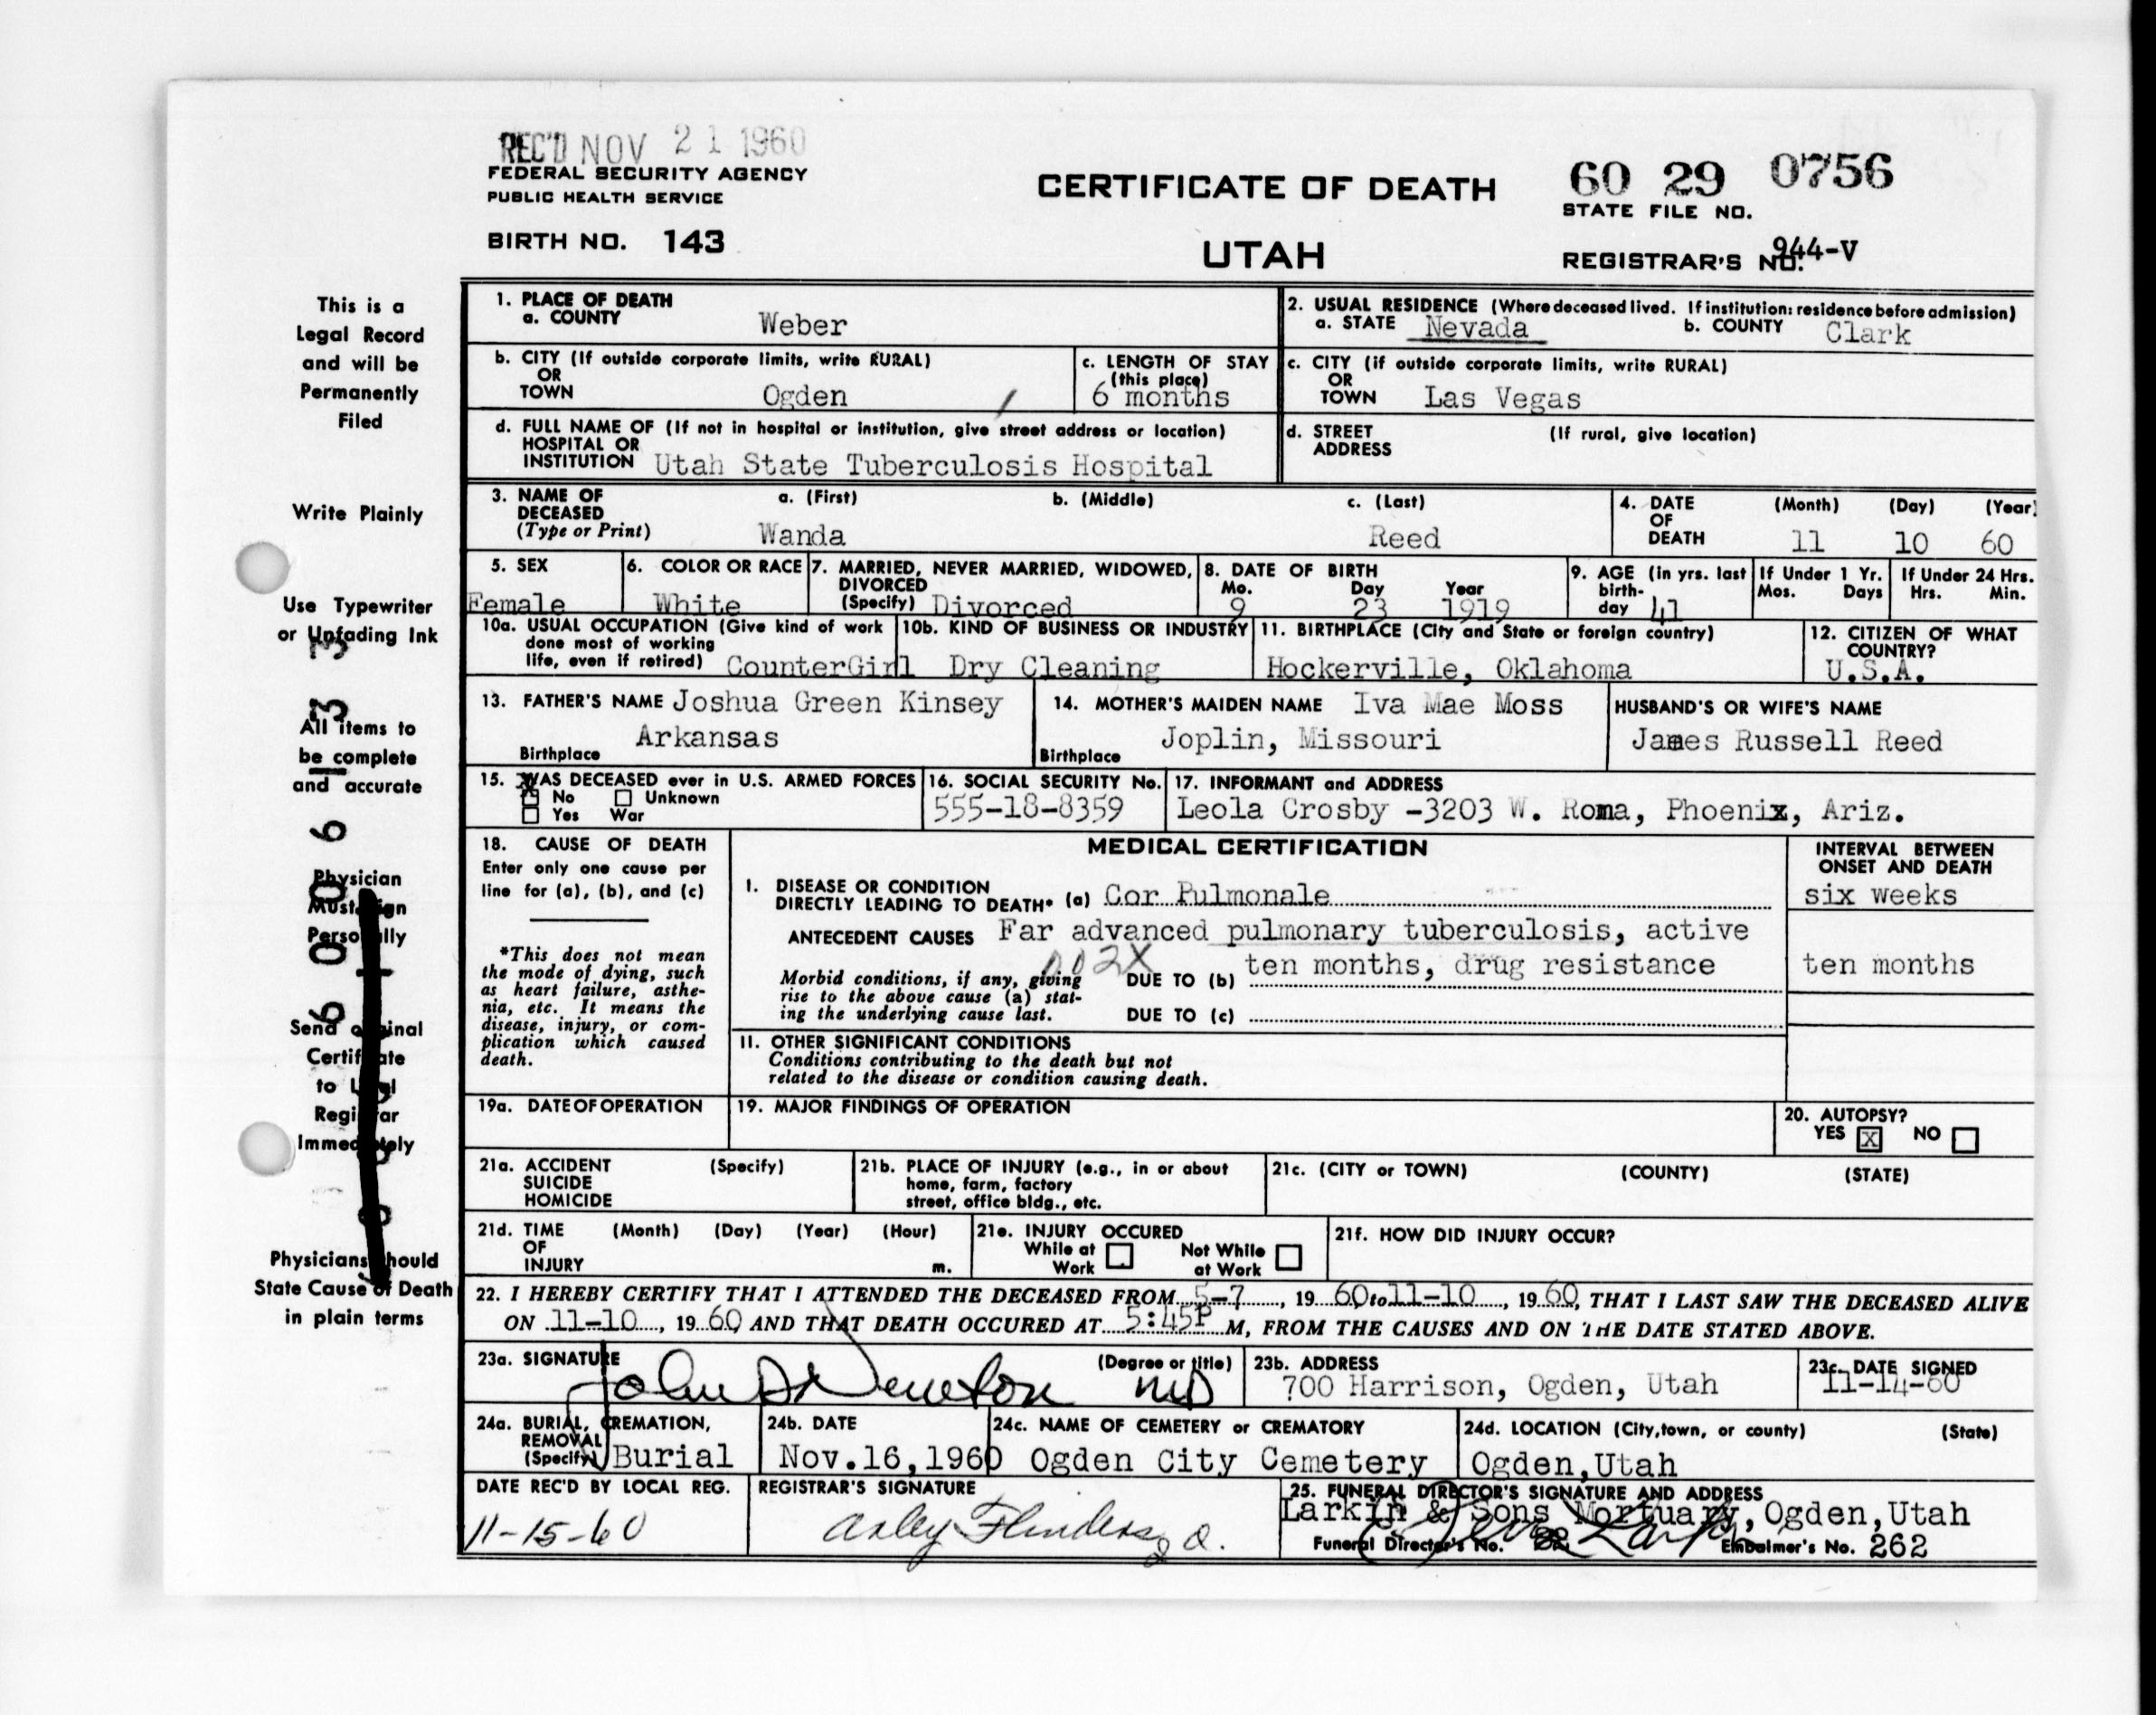 REC'D NOV 21 1960
FEDERAL SECURITY AGENCY
PUBLIC HEALTH SERVICE
BIRTH NO. 143
CERTIFICATE OF DEATH
UTAH
60 29 0756
STATE FILE NO.
REGISTRAR'S NO. 944-V
This is a
Legal Record
and will be
Permanently
Filed
Write Plainly
Use Typewriter
or Unfading Ink
All items to
be complete
and accurate
Physician
Must Sign
Personally
Send Original
Certificate
to Local
Registrar
Immediately
Physicians should
State Cause of Death
in plain terms
1. PLACE OF DEATH
a. COUNTY Weber
2. USUAL RESIDENCE (Where deceased lived. If institution: residence before admission)
a. STATE Nevada b. COUNTY Clark
b. CITY (If outside corporate limits, write RURAL)
OR
TOWN Ogden
c. LENGTH OF STAY
(this place)
6 months
c. CITY (if outside corporate limits, write RURAL)
OR
TOWN Las Vegas
d. FULL NAME OF (If not in hospital or institution, give street address or location)
HOSPITAL OR
INSTITUTION Utah State Tuberculosis Hospital
d. STREET (If rural, give location)
ADDRESS
3. NAME OF a. (First) b. (Middle) c. (Last)
DECEASED
(Type or Print) Wanda Reed
4. DATE (Month) (Day) (Year)
OF
DEATH 11 10 60
5. SEX
Female
6. COLOR OR RACE
White
7. MARRIED, NEVER MARRIED, WIDOWED,
DIVORCED
(Specify) Divorced
8. DATE OF BIRTH
Mo. Day Year
9 23 1919
9. AGE (in yrs. last
birth-
day 41
If Under 1 Yr.
Mos. Days
If Under 24 Hrs.
Hrs. Min.
10a. USUAL OCCUPATION (Give kind of work
done most of working
life, even if retired) CounterGirl
10b. KIND OF BUSINESS OR INDUSTRY
Dry Cleaning
11. BIRTHPLACE (City and State or foreign country)
Hockerville, Oklahoma
12. CITIZEN OF WHAT
COUNTRY?
U.S.A.
13. FATHER'S NAME Joshua Green Kinsey
Arkansas
Birthplace
14. MOTHER'S MAIDEN NAME Iva Mae Moss
Joplin, Missouri
Birthplace
HUSBAND'S OR WIFE'S NAME
James Russell Reed
15. WAS DECEASED ever in U.S. ARMED FORCES
X No Unknown
Yes War
16. SOCIAL SECURITY No.
555-18-8359
17. INFORMANT and ADDRESS
Leola Crosby -3203 W. Roma, Phoenix, Ariz.
18. CAUSE OF DEATH
Enter only one cause per
line for (a), (b), and (c)
*This does not mean
the mode of dying, such
as heart failure, asthe-
nia, etc. It means the
disease, injury, or com-
plication which caused
death.
MEDICAL CERTIFICATION
I. DISEASE OR CONDITION
DIRECTLY LEADING TO DEATH* (a) Cor Pulmonale
ANTECEDENT CAUSES Far advanced pulmonary tuberculosis, active
002X
Morbid conditions, if any, giving
rise to the above cause (a) stat-
ing the underlying cause last.
DUE TO (b) ten months, drug resistance
DUE TO (c)
INTERVAL BETWEEN
ONSET AND DEATH
six weeks
ten months
II. OTHER SIGNIFICANT CONDITIONS
Conditions contributing to the death but not
related to the disease or condition causing death.
19a. DATE OF OPERATION
19. MAJOR FINDINGS OF OPERATION
20. AUTOPSY?
YES X NO
21a. ACCIDENT (Specify)
SUICIDE
HOMICIDE
21b. PLACE OF INJURY (e.g., in or about
home, farm, factory
street, office bldg., etc.
21c. (CITY or TOWN) (COUNTY) (STATE)
21d. TIME (Month) (Day) (Year) (Hour)
OF
INJURY m.
21e. INJURY OCCURED
While at Work
Not While at Work
21f. HOW DID INJURY OCCUR?
22. I HEREBY CERTIFY THAT I ATTENDED THE DECEASED FROM 5-7, 19 60 to 11-10, 19 60, THAT I LAST SAW THE DECEASED ALIVE
ON 11-10, 19 60 AND THAT DEATH OCCURED AT 5:45P M, FROM THE CAUSES AND ON THE DATE STATED ABOVE.
23a. SIGNATURE (Degree or title)
John D Newton MD
23b. ADDRESS
700 Harrison, Ogden, Utah
23c. DATE SIGNED
11-14-60
24a. BURIAL, CREMATION,
REMOVAL
(Specify) Burial
24b. DATE
Nov.16,1960
24c. NAME OF CEMETERY or CREMATORY
Ogden City Cemetery
24d. LOCATION (City,town, or county) (State)
Ogden,Utah
DATE REC'D BY LOCAL REG.
11-15-60
REGISTRAR'S SIGNATURE
25. FUNERAL DIRECTOR'S SIGNATURE AND ADDRESS
Larkin & Sons Mortuary, Ogden,Utah
Funeral Director's No. Embalmer's No. 262